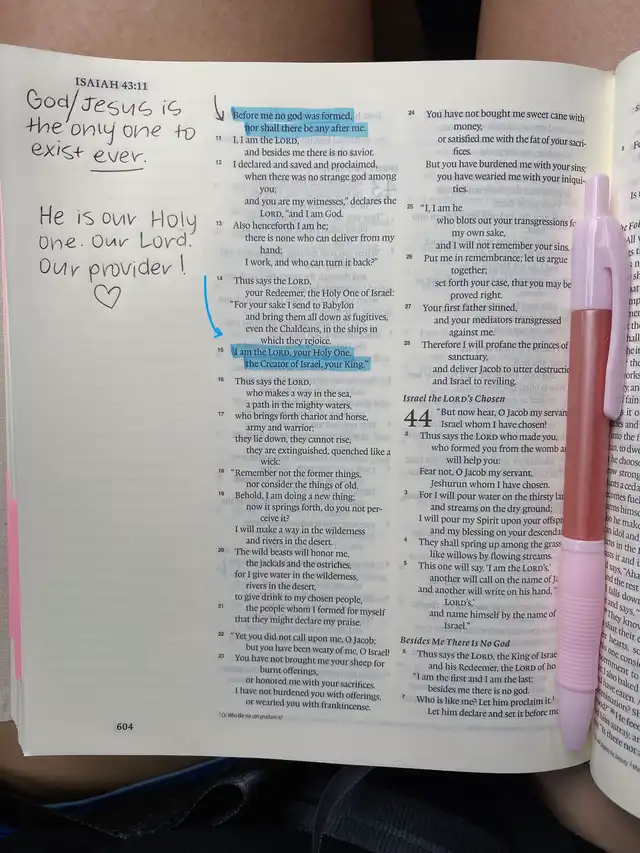 ISAIAH 43:11
God/Jesus is
the only one to
exist ever.
He is our Holy
one. Our Lord.
Our provider!
Before me no god was formed,
nor shall there be any after me.
11 I, I am the LORD,
and besides me there is no savior.
12 I declared and saved and proclaimed,
when there was no strange god among
you;
and you are my witnesses," declares the
LORD, "and I am God.
13 Also henceforth I am he;
there is none who can deliver from my
hand;
I work, and who can turn it back?"
14 Thus says the LORD,
your Redeemer, the Holy One of Israel:
"For your sake I send to Babylon
and bring them all down as fugitives,
even the Chaldeans, in the ships in
which they rejoice.
15 I am the LORD, your Holy One,
the Creator of Israel, your King."
16 Thus says the LORD,
who makes a way in the sea,
a path in the mighty waters,
17 who brings forth chariot and horse,
army and warrior;
they lie down, they cannot rise,
they are extinguished, quenched like a
wick:
18 "Remember not the former things,
nor consider the things of old.
19 Behold, I am doing a new thing;
now it springs forth, do you not per-
ceive it?
I will make a way in the wilderness
and rivers in the desert.
20 The wild beasts will honor me,
the jackals and the ostriches,
for I give water in the wilderness,
rivers in the desert,
to give drink to my chosen people,
21 the people whom I formed for myself
that they might declare my praise.
22 "Yet you did not call upon me, O Jacob;
but you have been weary of me, O Israel!
23 You have not brought me your sheep for
burnt offerings,
or honored me with your sacrifices.
I have not burdened you with offerings,
or wearied you with frankincense.
24 You have not bought me sweet cane with
money,
or satisfied me with the fat of your sacri-
fices.
But you have burdened me with your sins;
you have wearied me with your iniqui-
ties.
25 "I, I am he
who blots out your transgressions
my own sake,
and I will not remember your sins.
26 Put me in remembrance; let us argue
together;
set forth your case, that you may be
proved right.
27 Your first father sinned,
and your mediators transgressed
against me.
28 Therefore I will profane the princes of
sanctuary,
and deliver Jacob to utter
and Israel to reviling.
Israel the LORD's Chosen
44 "But now hear, O Jacob my
Israel whom I have chosen!
2 Thus says the LORD who made you,
who formed you from the womb
will help you:
Fear not, O Jacob my servant,
Jeshurun whom I have chosen.
3 For I will pour water on the thirsty
and streams on the dry ground;
I will pour my Spirit upon your
and my blessing on your
4 They shall spring up among the
like willows by flowing streams.
5 This one will say, 'I am the LORD's,'
another will call on the name of
and another will write on his hand,
LORD's,'
and name himself by the name of
Israel."
Besides Me There Is No God
6 Thus says the LORD, the King of
and his Redeemer, the LORD of
"I am the first and I am the last;
besides me there is no god.
7 Who is like me? Let him proclaim it.
Let him declare and set it before
Or Who like me can proclaim it?
604